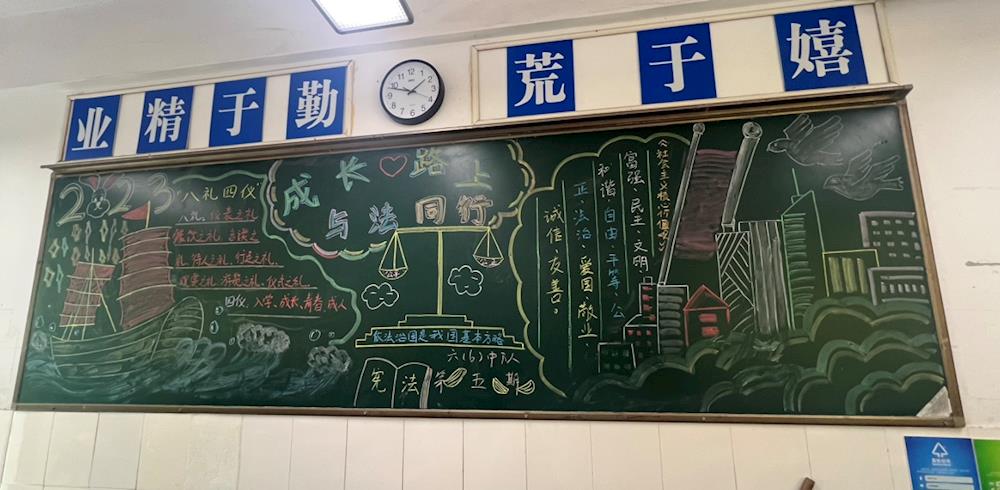 业精于勤
荒于嬉
2023
"八礼四仪"
八礼、仪表之礼
餐饮之礼、言谈之
礼、待人之礼、行走之礼、
观赏之礼、游览之礼、仪式之礼。
四仪、入学、成长、青春、成人
成长路上
与法同行
依法治国是我国基本方略
六(6)中队
宪法 第五期
《社会主义核心价值观》
富强、民主、文明、
和谐、自由、平等、公
正、法治、爱国、敬业、
诚信、友善。